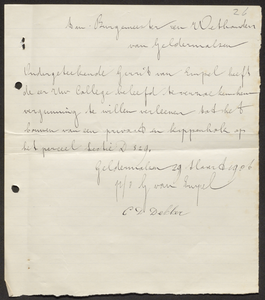 26
Aan Burgemeester en Wethouders
van Geldermalsen
Ondergeteekende Gerrit van Empel heeft
de eer Uw College beleefd te verzoeken hem
vergunning te willen verleenen tot het
bouwen van een privaat en kippenhok op
het perceel sectie 829.
Geldermalsen 29 Maart 1906
G van Empel